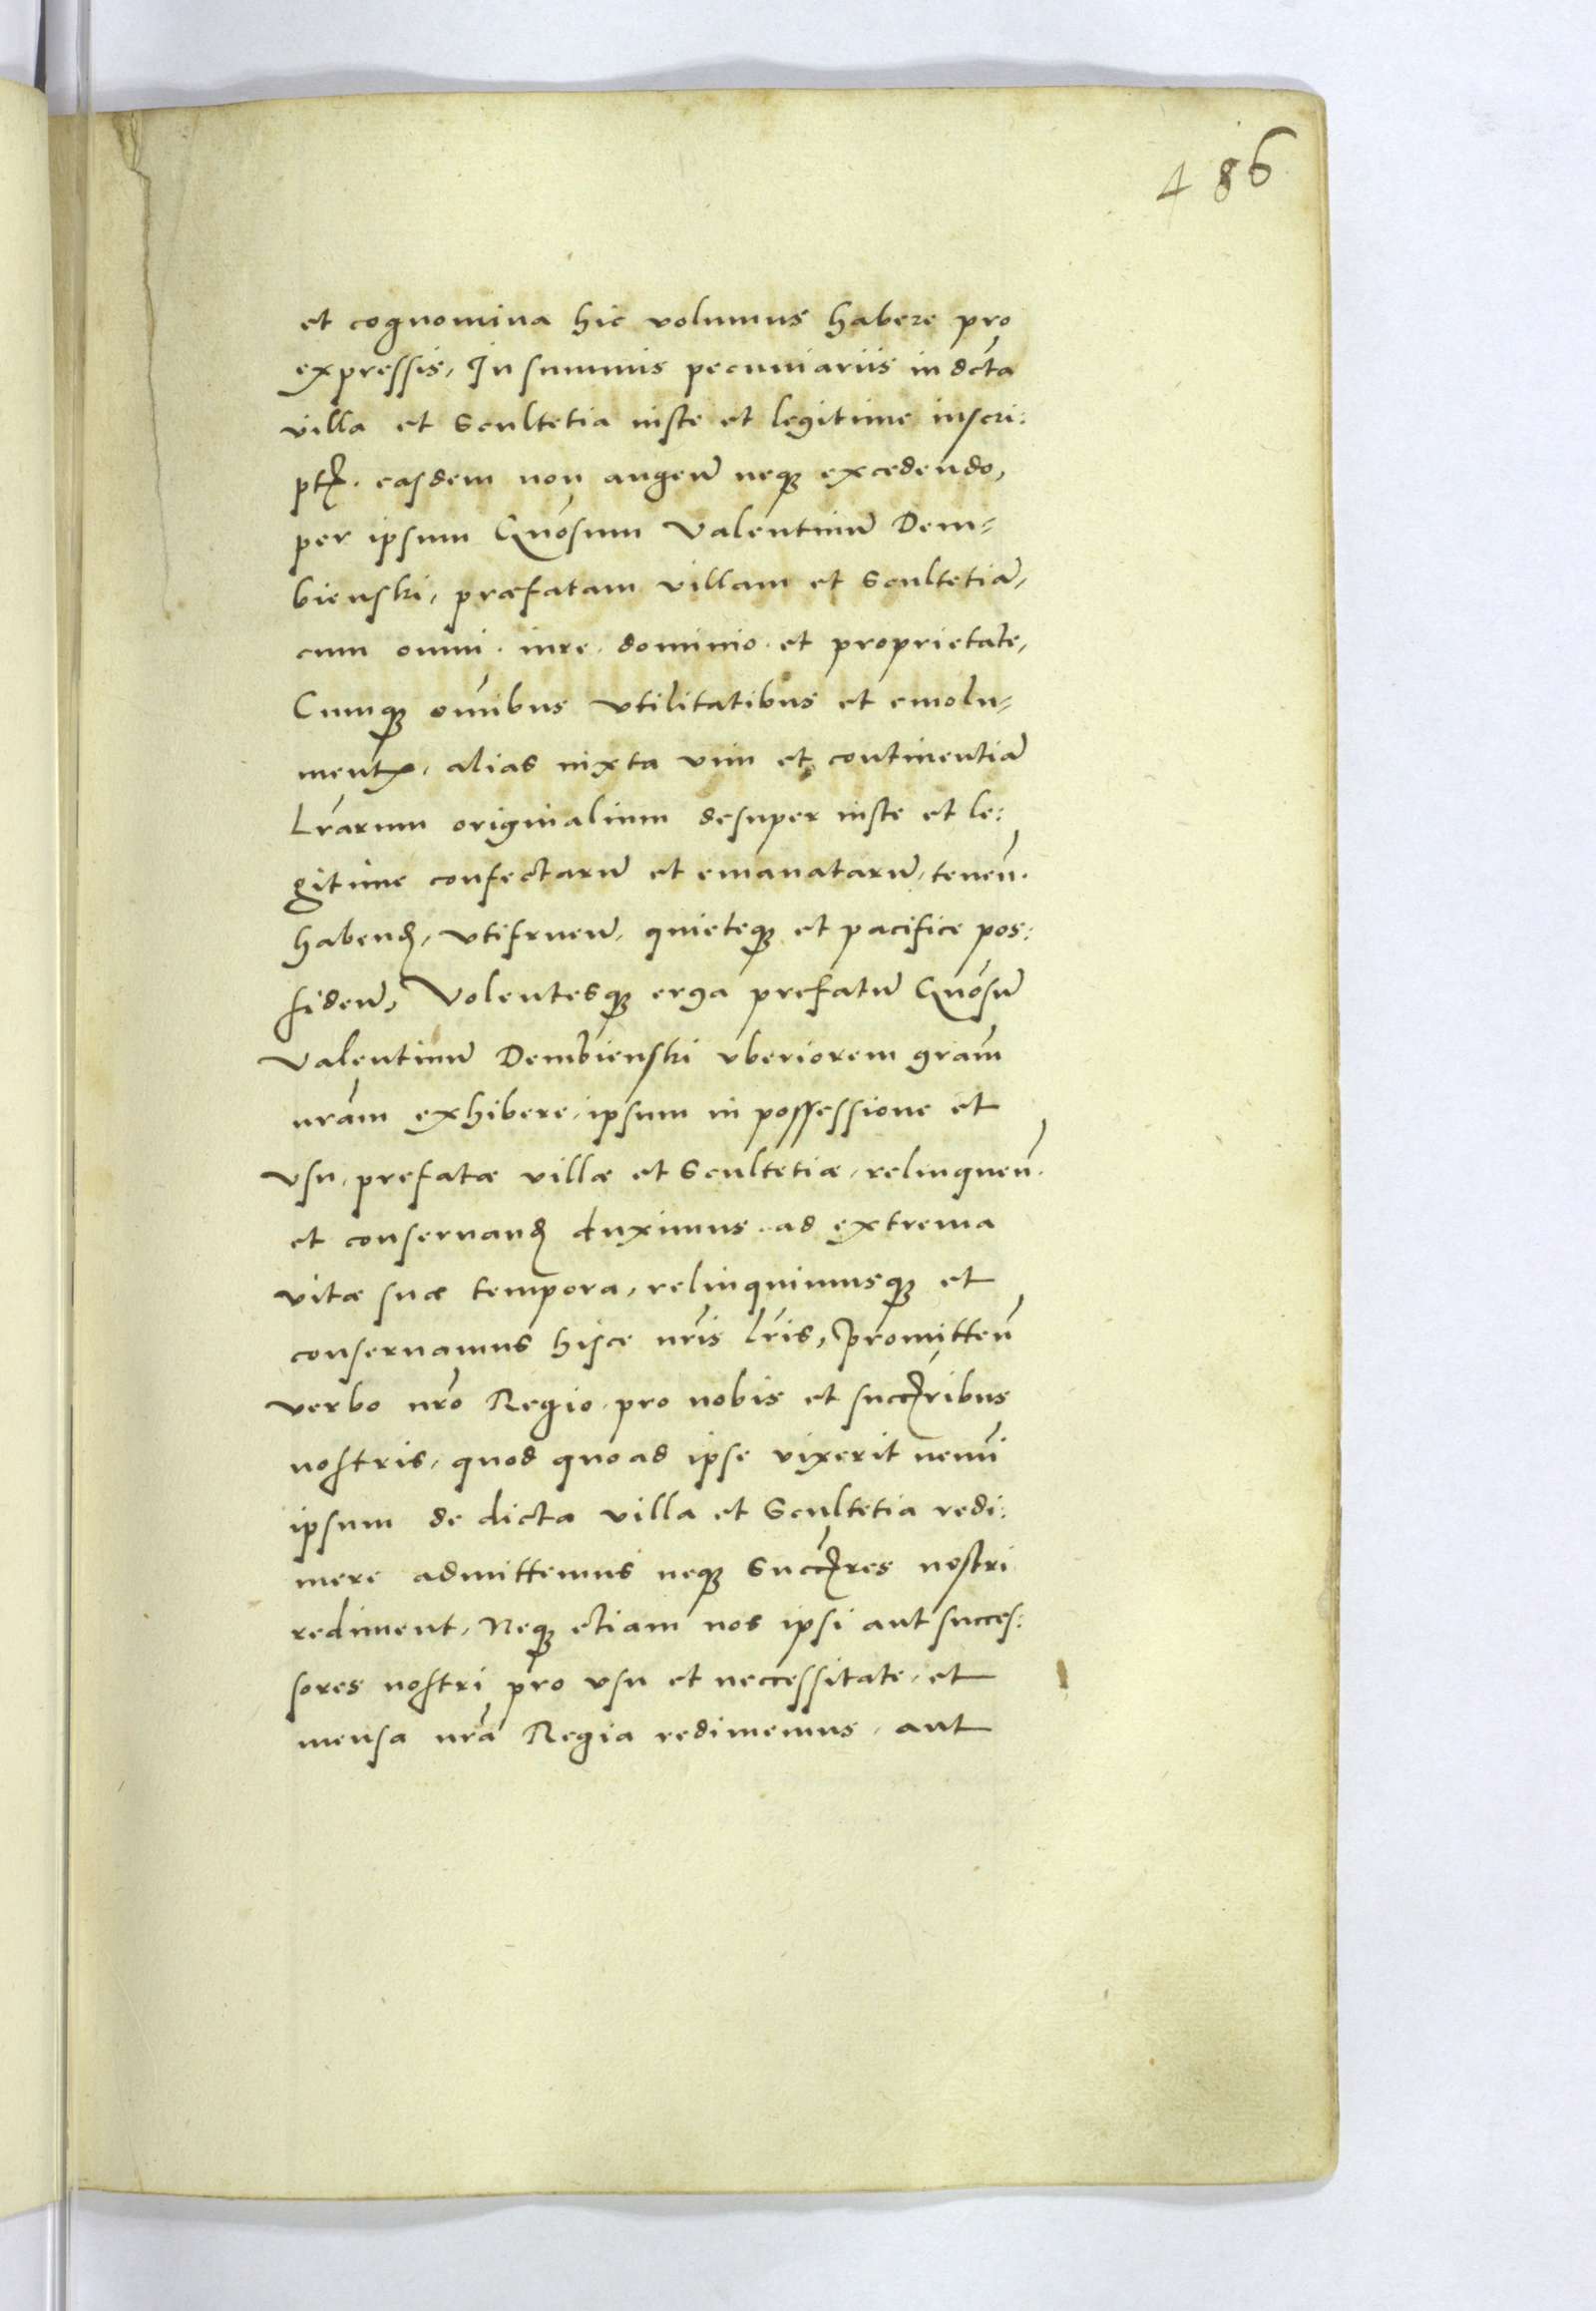 486
et cognomina hic volumus habere pro
expressis, In summis pecuniariis in dcta
villa et Scultetia iuste et legitime inscri:
pt. easdem non augeñ neq excedendo,
per ipsum Gñosum Valentinũ Dem-
bienski, præfatam villam et Scultetiã,
cum omni. iure. dominio. et proprietate,
Cumq om̃ibus vtilitatibus et emolu-
ment, alias iuxta vim et continentiã
Lr̃arum originalium desuper iuste et le:
gitime confectarũ et emanatarũ, teneñ.
habend, vtifrueñ, quieteq et pacifice pos:
sideñ, Volentesq erga prefatũ Gñosũ
Valentinũ Dembienski vberiorem gr̃am
nr̃am exhibere, ipsum in possessione et
vsu, prefatæ villæ et Scultetiæ, relinqueñ.
et conseruand duximus. ad extrema
vitæ suæ tempora, relinquimusq et
conseruamus hisce nr̃is lr̃is, Promitteñ
verbo nr̃o Regio. pro nobis et succribus
nostris, quod quoad ipse vixerit nemĩ
ipsum de dicta villa et Scultetia redi:
mere admittemus neq Succres nostri
rediment, Neq etiam nos ipsi aut succes:
sores nostri pro vsu et neccessitate, et
mensa nr̃a Regia redimemus, aut